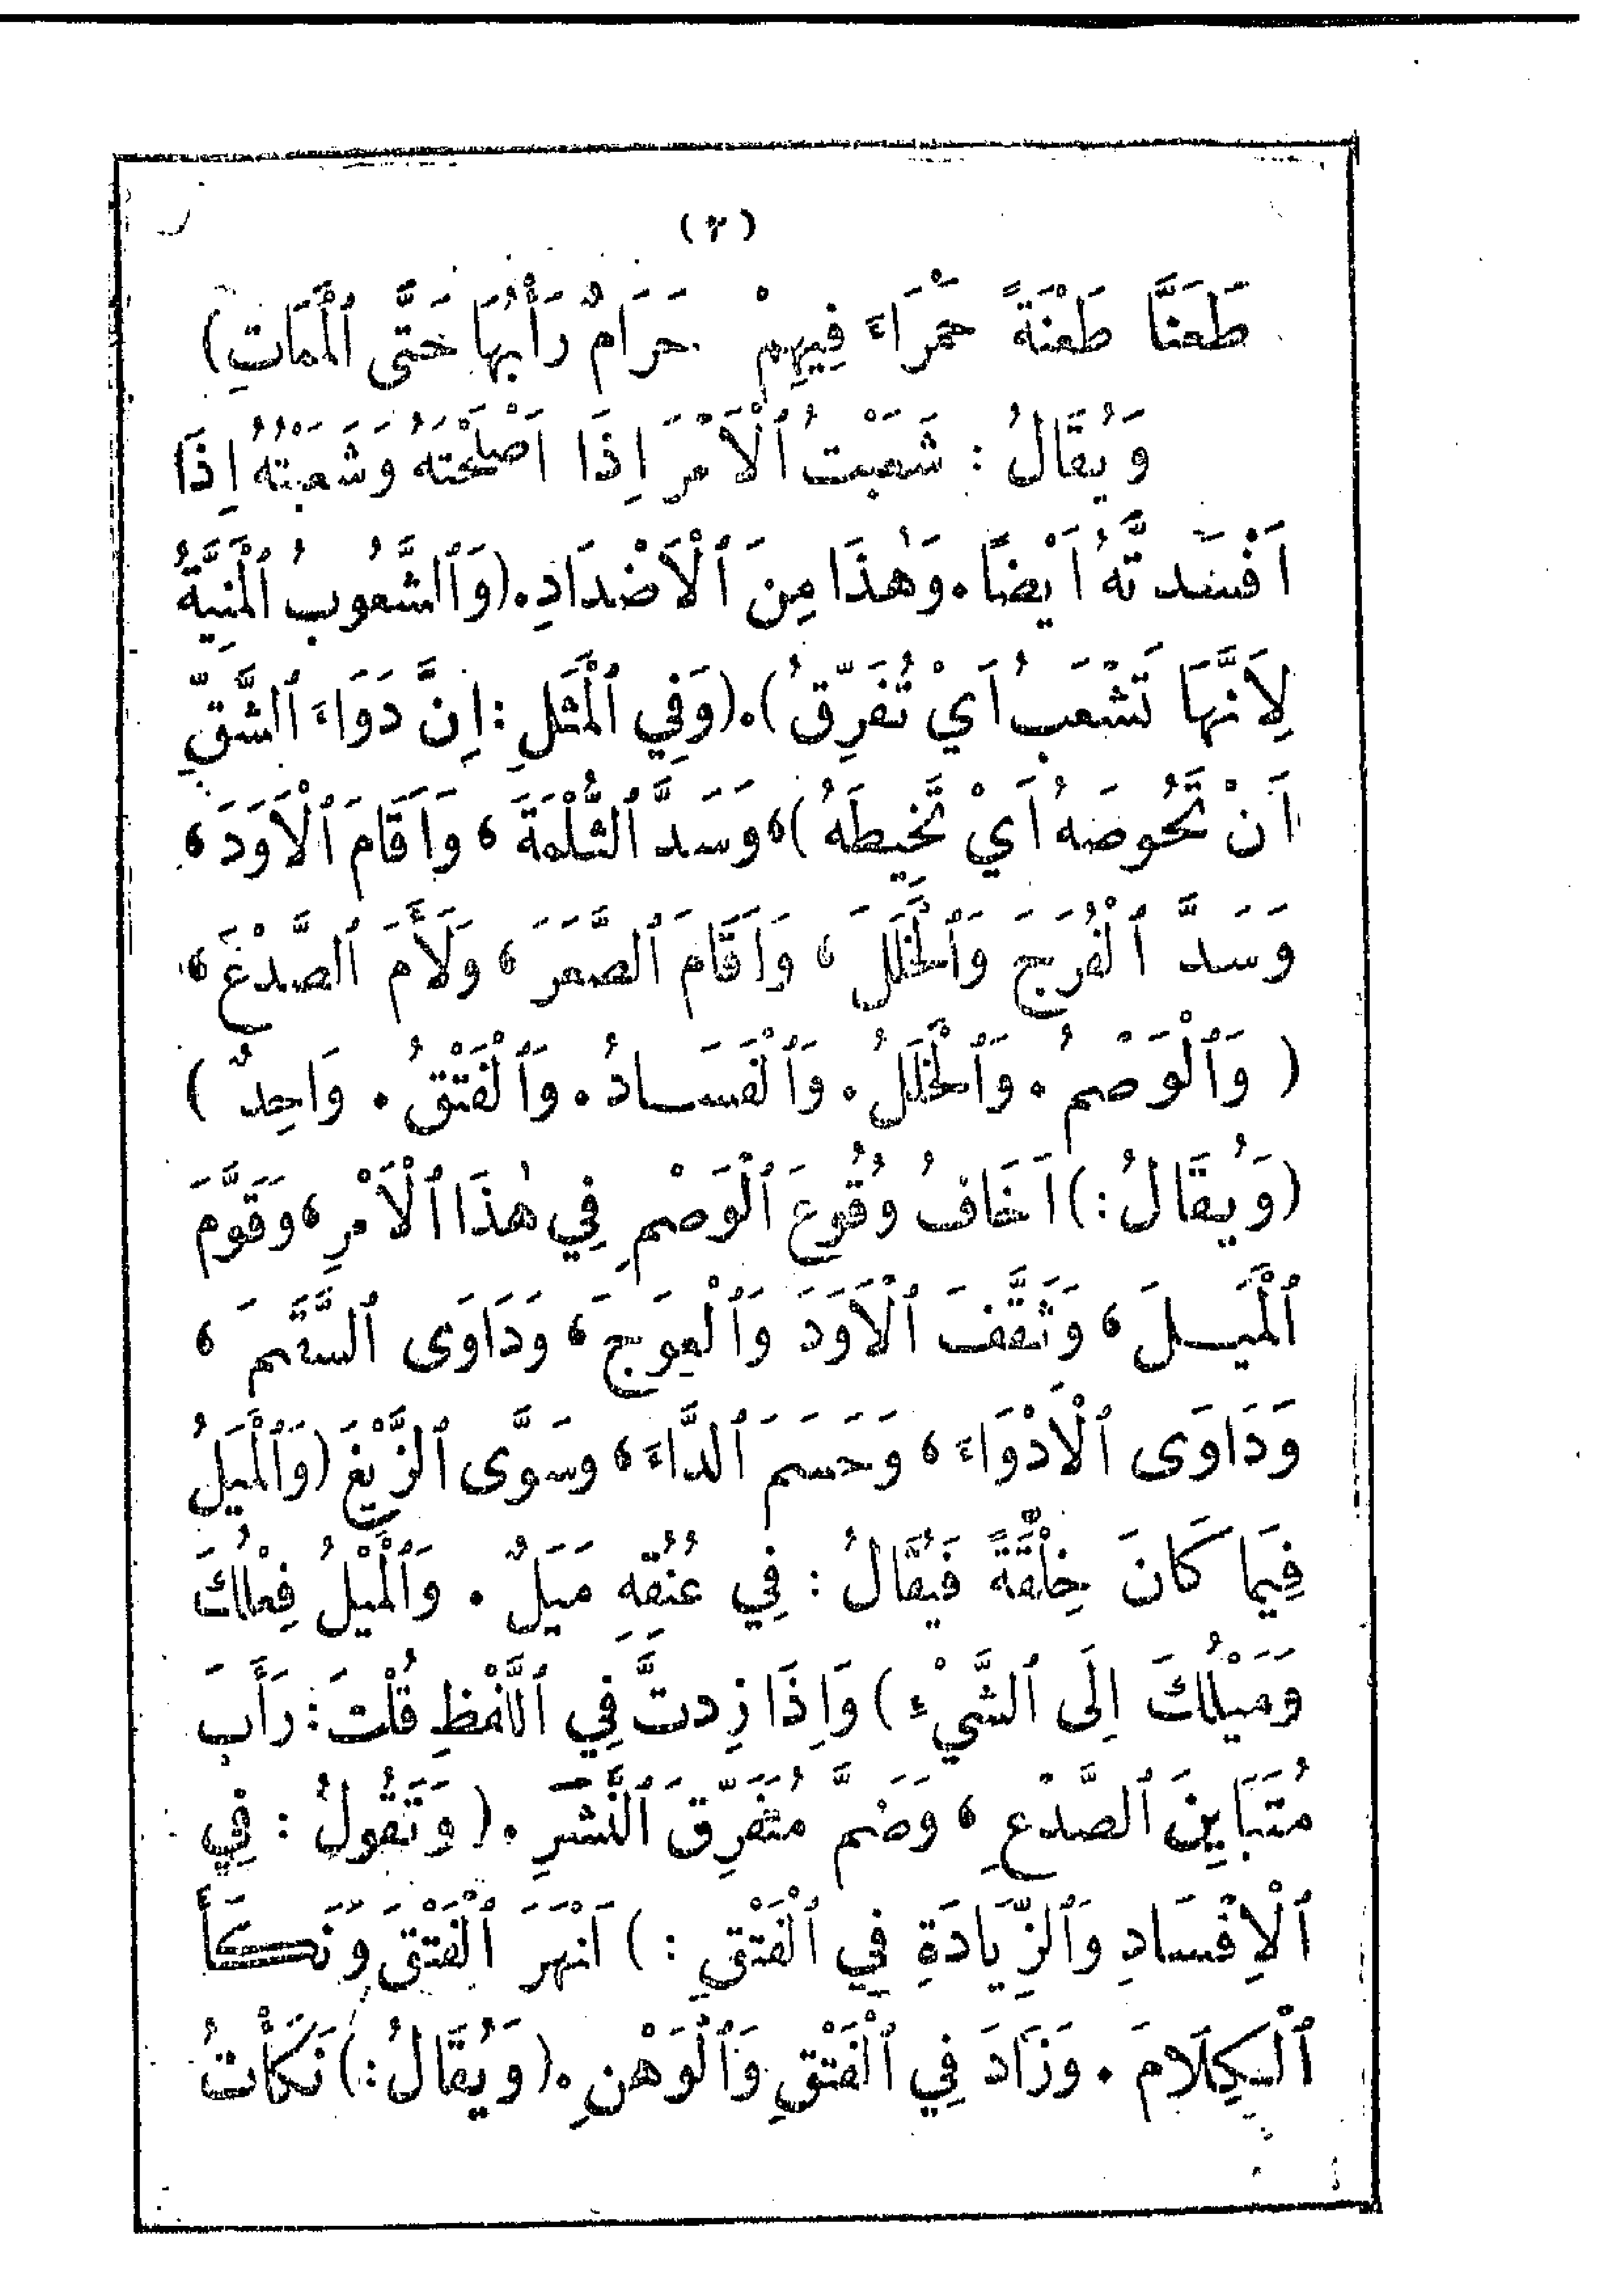 (٣)
طَعَنَّا طَعْنَةً حَمْرَاءَ فِيهِمْ حَرَامٌ رَأْبُهَا حَتَّى ٱلْمَمَاتِ)
وَيُقَالُ : شَعَبْتُ ٱلْأَمْرَ إِذَا أَصْلَحْتَهُ وَشَعَبْتُهُ إِذَا
أَفْسَدتَّهُ أَيْضًا. وَهٰذَا مِنَ ٱلْأَضْدَادِ. (وَٱلشَّعُوبُ ٱلْمَنِيَّةُ
لِأَنَّهَا تَشْعَبُ أَيْ تُفَرِّقُ). (وَفِي ٱلْمَثَلِ : إِنَّ دَوَاءَ ٱلشَّقِّ
أَنْ تَحُوصَهُ أَيْ تَخِيطَهُ)، وَسَدَّ ٱلثُّلْمَةَ ، وَأَقَامَ ٱلْأَوَدَ ،
وَسَدَّ ٱلْفُرَجَ وَٱلْخَلَلَ ، وَأَقَامَ ٱلصَّعَرَ ، وَلَأَمَ ٱلصَّدْعَ ،
( وَٱلْوَصْمُ . وَٱلْخَلَلُ . وَٱلْفَسَادُ . وَٱلْفَتْقُ . وَاحِدٌ )
(وَيُقَالُ :) أَخَافُ وُقُوعَ ٱلْوَصْمِ فِي هٰذَا ٱلْأَمْرِ ، وَقَوَّمَ
ٱلْمَيَلَ ، وَثَقَّفَ ٱلْأَوَدَ وَٱلْعِوَجَ ، وَدَاوَى ٱلسَّقَمَ ،
وَدَاوَى ٱلْأَدْوَاءَ ، وَحَسَمَ ٱلدَّاءَ ، وَسَوَّى ٱلزَّيْغَ (وَٱلْمَيَلُ
فِيمَا كَانَ خِلْقَةً فَيُقَالُ : فِي عُنُقِهِ مَيَلٌ . وَٱلْمَيْلُ فِعْلُكَ
وَمَيْلُكَ إِلَى ٱلشَّيْءِ) وَإِذَا زِدتَّ فِي ٱللَّفْظِ قُلْتَ : رَأَبَ
مُتَبَايِنَ ٱلصَّدْعِ ، وَضَمَّ مُتَفَرِّقَ ٱلنَّشْرِ . (وَتَقُولُ : فِي
ٱلْإِفْسَادِ وَٱلزِّيَادَةِ فِي ٱلْفَتْقِ :) أَنْهَرَ ٱلْفَتْقَ وَنَكَأَ
ٱلْكِلَامَ . وَزَادَ فِي ٱلْفَتْقِ وَٱلْوَهْنِ . (وَيُقَالُ :) نَكَأْتُ